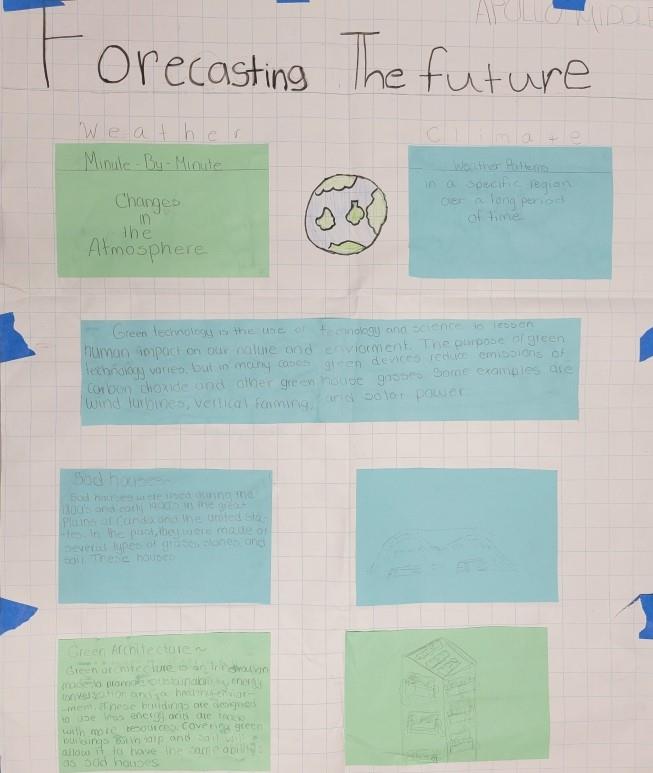 APOLLO MIDDLE
Forecasting The future
Weather
Climate
Minute-By-Minute
Changes
in
the
Atmosphere
Weather Patterns
in a specific region
over a long period
of time
Green technology is the use of technology and science to lessen
human impact on our nature and enviorment. The purpose of green
technology varies, but in many cases green devices reduce emissions of
carbon dioxide and other green house gasses. Some examples are
wind turbines, vertical farming, and solar power
Sod houses-
Sod houses were used during the
1800's and early 1900s in the great
Plains of Canda and the united sta-
tes. In the past, they were made of
several types of grass, stones, and
soil. These houses
Green Architecture~
Green architecture is an
made to promote sustainability, energy
conversation and a healthy envior-
ment. These buildings are designed
to use less energy and are made
with more resources. Covering green
buildings in and soil will
allow it to have the same ability
as sod houses